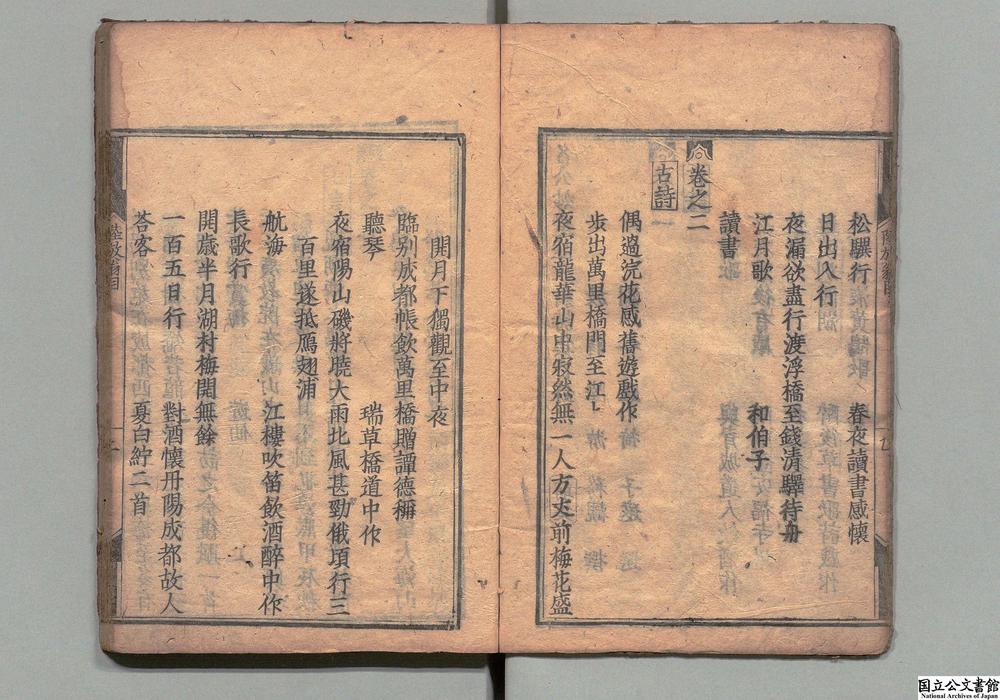 松驥行　春夜讀書感懷
日出入行
夜漏欲盡行渡浮橋至錢清驛待舟
江月歌　和伯子
讀書
卷之二
古詩
偶過浣花感舊遊戲作
步出萬里橋門至江上
夜宿龍華山中寂然無一人方丈前梅花盛
開月下獨觀至中夜
臨別成都帳飲萬里橋贈譚德稱
聽琴　瑞草橋道中作
夜宿陽山磯將曉大雨北風甚勁俄頃行三
百里遂抵鴈翅浦
航海　江樓吹笛飲酒醉中作
長歌行
開歲半月湖村梅開無餘
一百五日行　對酒懷丹陽成都故人
荅客　夏白紵二首
国立公文書館
National Archives of Japan